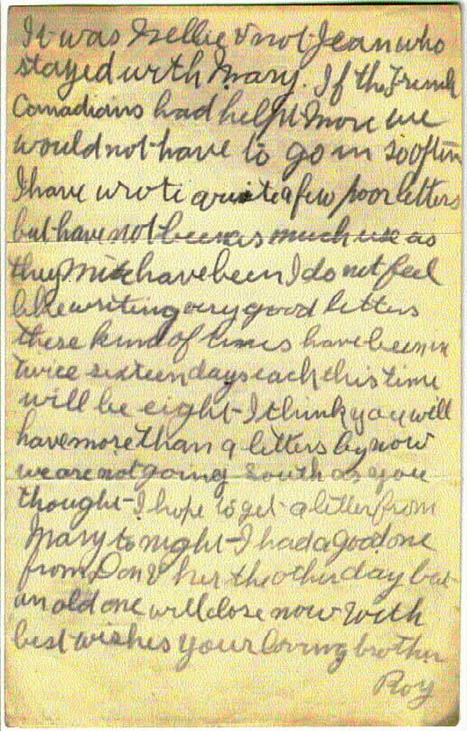 It was Nellie & not Jean who
stayed with Mary. If the French
Canadians had helpt more we
would not have to go in so often
I have wrote quite a few poor letters
but have not been as much use as
they mite have been I do not feel
like writing very good letters
these kind of times have been in
twice sixteen days each this time
will be eight - I think you will
have more than 9 letters by now
we are not going South as you
thought - I hope to get a letter from
Mary to night - I had a good one
from Don & her the other day but
an old one will close now with
best wishes your loving brother
Roy